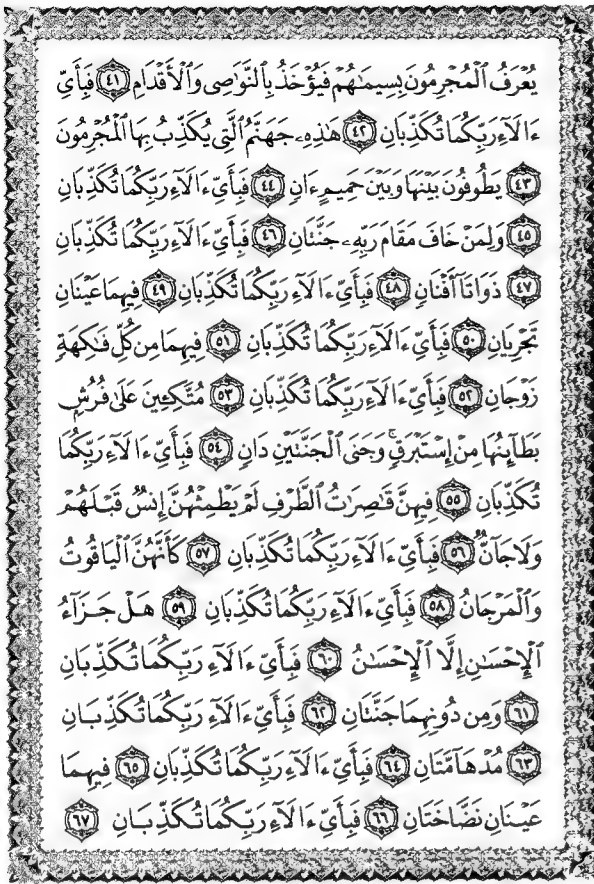 يُعْرَفُ ٱلْمُجْرِمُونَ بِسِيمَٰهُمْ فَيُؤْخَذُ بِٱلنَّوَٰصِى وَٱلْأَقْدَامِ ٤١ فَبِأَىِّ
ءَالَآءِ رَبِّكُمَا تُكَذِّبَانِ ٤٢ هَٰذِهِۦ جَهَنَّمُ ٱلَّتِى يُكَذِّبُ بِهَا ٱلْمُجْرِمُونَ
٤٣ يَطُوفُونَ بَيْنَهَا وَبَيْنَ حَمِيمٍ ءَانٍ ٤٤ فَبِأَىِّ ءَالَآءِ رَبِّكُمَا تُكَذِّبَانِ
٤٥ وَلِمَنْ خَافَ مَقَامَ رَبِّهِۦ جَنَّتَانِ ٤٦ فَبِأَىِّ ءَالَآءِ رَبِّكُمَا تُكَذِّبَانِ
٤٧ ذَوَاتَآ أَفْنَانٍ ٤٨ فَبِأَىِّ ءَالَآءِ رَبِّكُمَا تُكَذِّبَانِ ٤٩ فِيهِمَا عَيْنَانِ
تَجْرِيَانِ ٥٠ فَبِأَىِّ ءَالَآءِ رَبِّكُمَا تُكَذِّبَانِ ٥١ فِيهِمَا مِن كُلِّ فَٰكِهَةٍ
زَوْجَانِ ٥٢ فَبِأَىِّ ءَالَآءِ رَبِّكُمَا تُكَذِّبَانِ ٥٣ مُتَّكِـِٔينَ عَلَىٰ فُرُشٍۭ
بَطَآئِنُهَا مِنْ إِسْتَبْرَقٍۚ وَجَنَى ٱلْجَنَّتَيْنِ دَانٍ ٥٤ فَبِأَىِّ ءَالَآءِ رَبِّكُمَا
تُكَذِّبَانِ ٥٥ فِيهِنَّ قَٰصِرَٰتُ ٱلطَّرْفِ لَمْ يَطْمِثْهُنَّ إِنسٌ قَبْلَهُمْ
وَلَا جَآنٌّ ٥٦ فَبِأَىِّ ءَالَآءِ رَبِّكُمَا تُكَذِّبَانِ ٥٧ كَأَنَّهُنَّ ٱلْيَاقُوتُ
وَٱلْمَرْجَانُ ٥٨ فَبِأَىِّ ءَالَآءِ رَبِّكُمَا تُكَذِّبَانِ ٥٩ هَلْ جَزَآءُ
ٱلْإِحْسَٰنِ إِلَّا ٱلْإِحْسَٰنُ ٦٠ فَبِأَىِّ ءَالَآءِ رَبِّكُمَا تُكَذِّبَانِ
٦١ وَمِن دُونِهِمَا جَنَّتَانِ ٦٢ فَبِأَىِّ ءَالَآءِ رَبِّكُمَا تُكَذِّبَانِ
٦٣ مُدْهَآمَّتَانِ ٦٤ فَبِأَىِّ ءَالَآءِ رَبِّكُمَا تُكَذِّبَانِ ٦٥ فِيهِمَا
عَيْنَانِ نَضَّاخَتَانِ ٦٦ فَبِأَىِّ ءَالَآءِ رَبِّكُمَا تُكَذِّبَانِ ٦٧